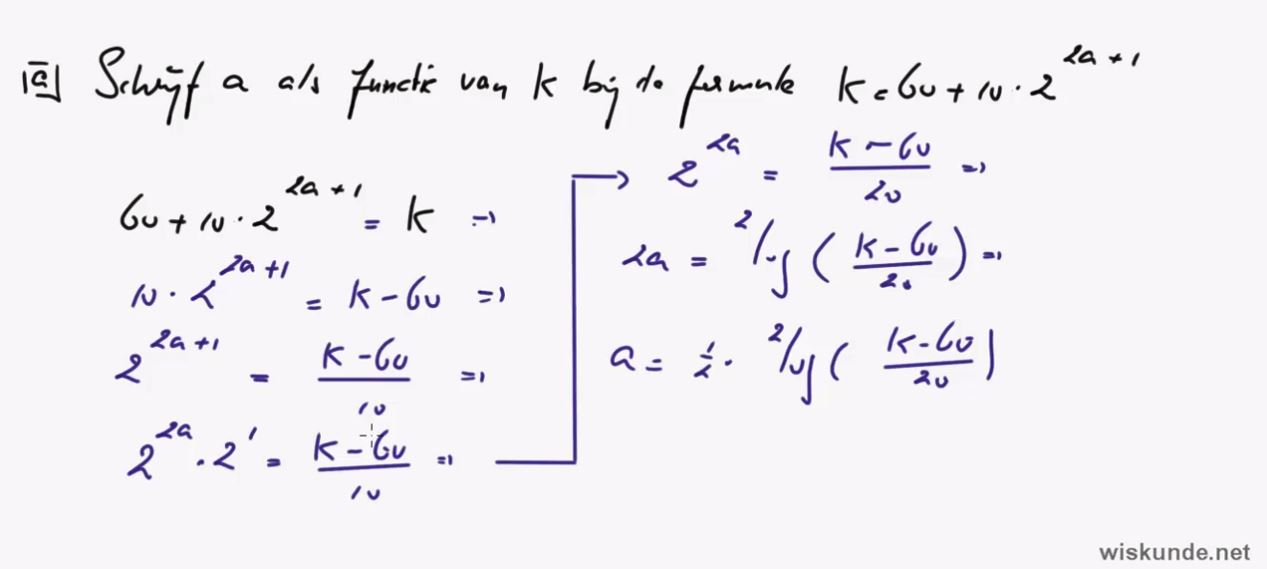 a) Schrijf a als functie van k bij de formule k = 60 + 10 · 2^(2a+1)
60 + 10 · 2^(2a+1) = k ⇒
10 · 2^(2a+1) = k - 60 ⇒
2^(2a+1) = (k - 60)/10 ⇒
2^(2a) · 2^1 = (k - 60)/10 ⇒
→ 2^(2a) = (k - 60)/20 ⇒
2a = ²log((k - 60)/20) ⇒
a = 1/2 · ²log((k - 60)/20)
wiskunde.net